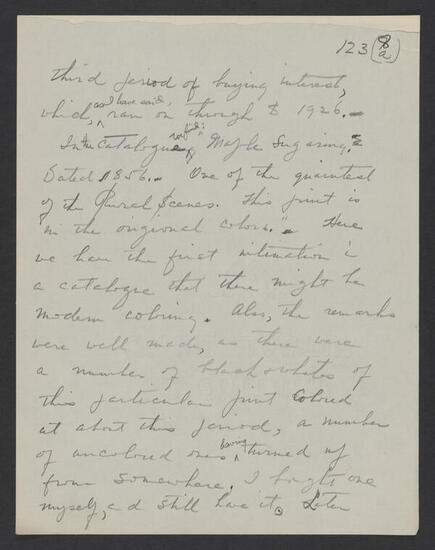 123 8a
third period of buying interest,
which, as I have said, ran on through to 1926.—
In the catalogue, we find: "Maple Sugaring.
Dated 1856.— One of the quaintest
of the Rural Scenes. This print is
in the origional colors."— Here
we have the first intimation i
a catalogue that there might be
modern coloring. Also, the remarks
were well made, as there were
a number of black & whites of
this particular print colored
at about this period, a number
of uncolored ones having turned up
from somewhere. I bought one
myself, and still have it. Later